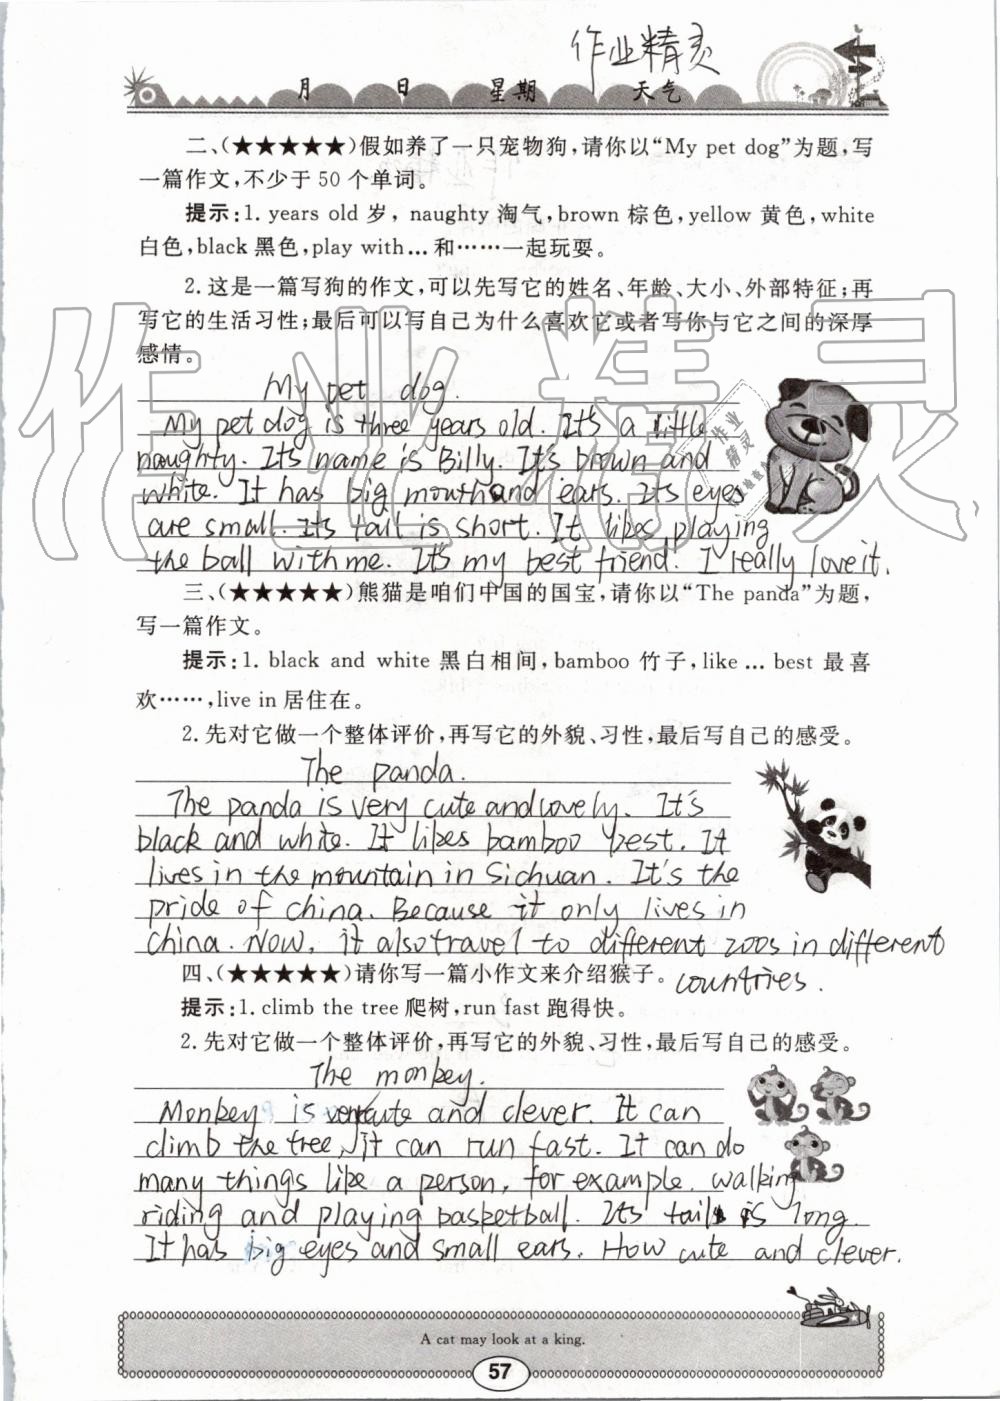 作业精灵
月 日 星期 天气
二、(★★★★★)假如养了一只宠物狗,请你以“My pet dog”为题,写
一篇作文,不少于50个单词。
提示:1. years old 岁, naughty 淘气, brown 棕色, yellow 黄色, white
白色, black 黑色, play with … 和……一起玩耍。
2. 这是一篇写狗的作文,可以先写它的姓名、年龄、大小、外部特征;再
写它的生活习性;最后可以写自己为什么喜欢它或者写你与它之间的深厚
感情。
My pet dog.
My pet dog is three years old. It's a little
naughty. It's name is Billy. It's brown and
white. It has big mouth and ears. Its eyes
are small. Its tail is short. It likes playing
the ball with me. It's my best friend. I really love it.
作业精灵
作业
精灵
三、(★★★★★)熊猫是咱们中国的国宝,请你以“The panda”为题,
写一篇作文。
提示:1. black and white 黑白相间, bamboo 竹子, like … best 最喜
欢……, live in 居住在。
2. 先对它做一个整体评价,再写它的外貌、习性,最后写自己的感受。
The panda.
The panda is very cute and lovely. It's
black and white. It likes bamboo best. It
lives in the mountain in Sichuan. It's the
pride of china. Because it only lives in
china. Now, it also travel to different zoos in different
countries.
四、(★★★★★)请你写一篇小作文来介绍猴子。
提示:1. climb the tree 爬树, run fast 跑得快。
2. 先对它做一个整体评价,再写它的外貌、习性,最后写自己的感受。
The monkey.
Monkey is very cute and clever. It can
climb the tree, it can run fast. It can do
many things like a person, for example, walking
riding and playing basketball. Its tail is long.
It has big eyes and small ears. How cute and clever.
A cat may look at a king.
57